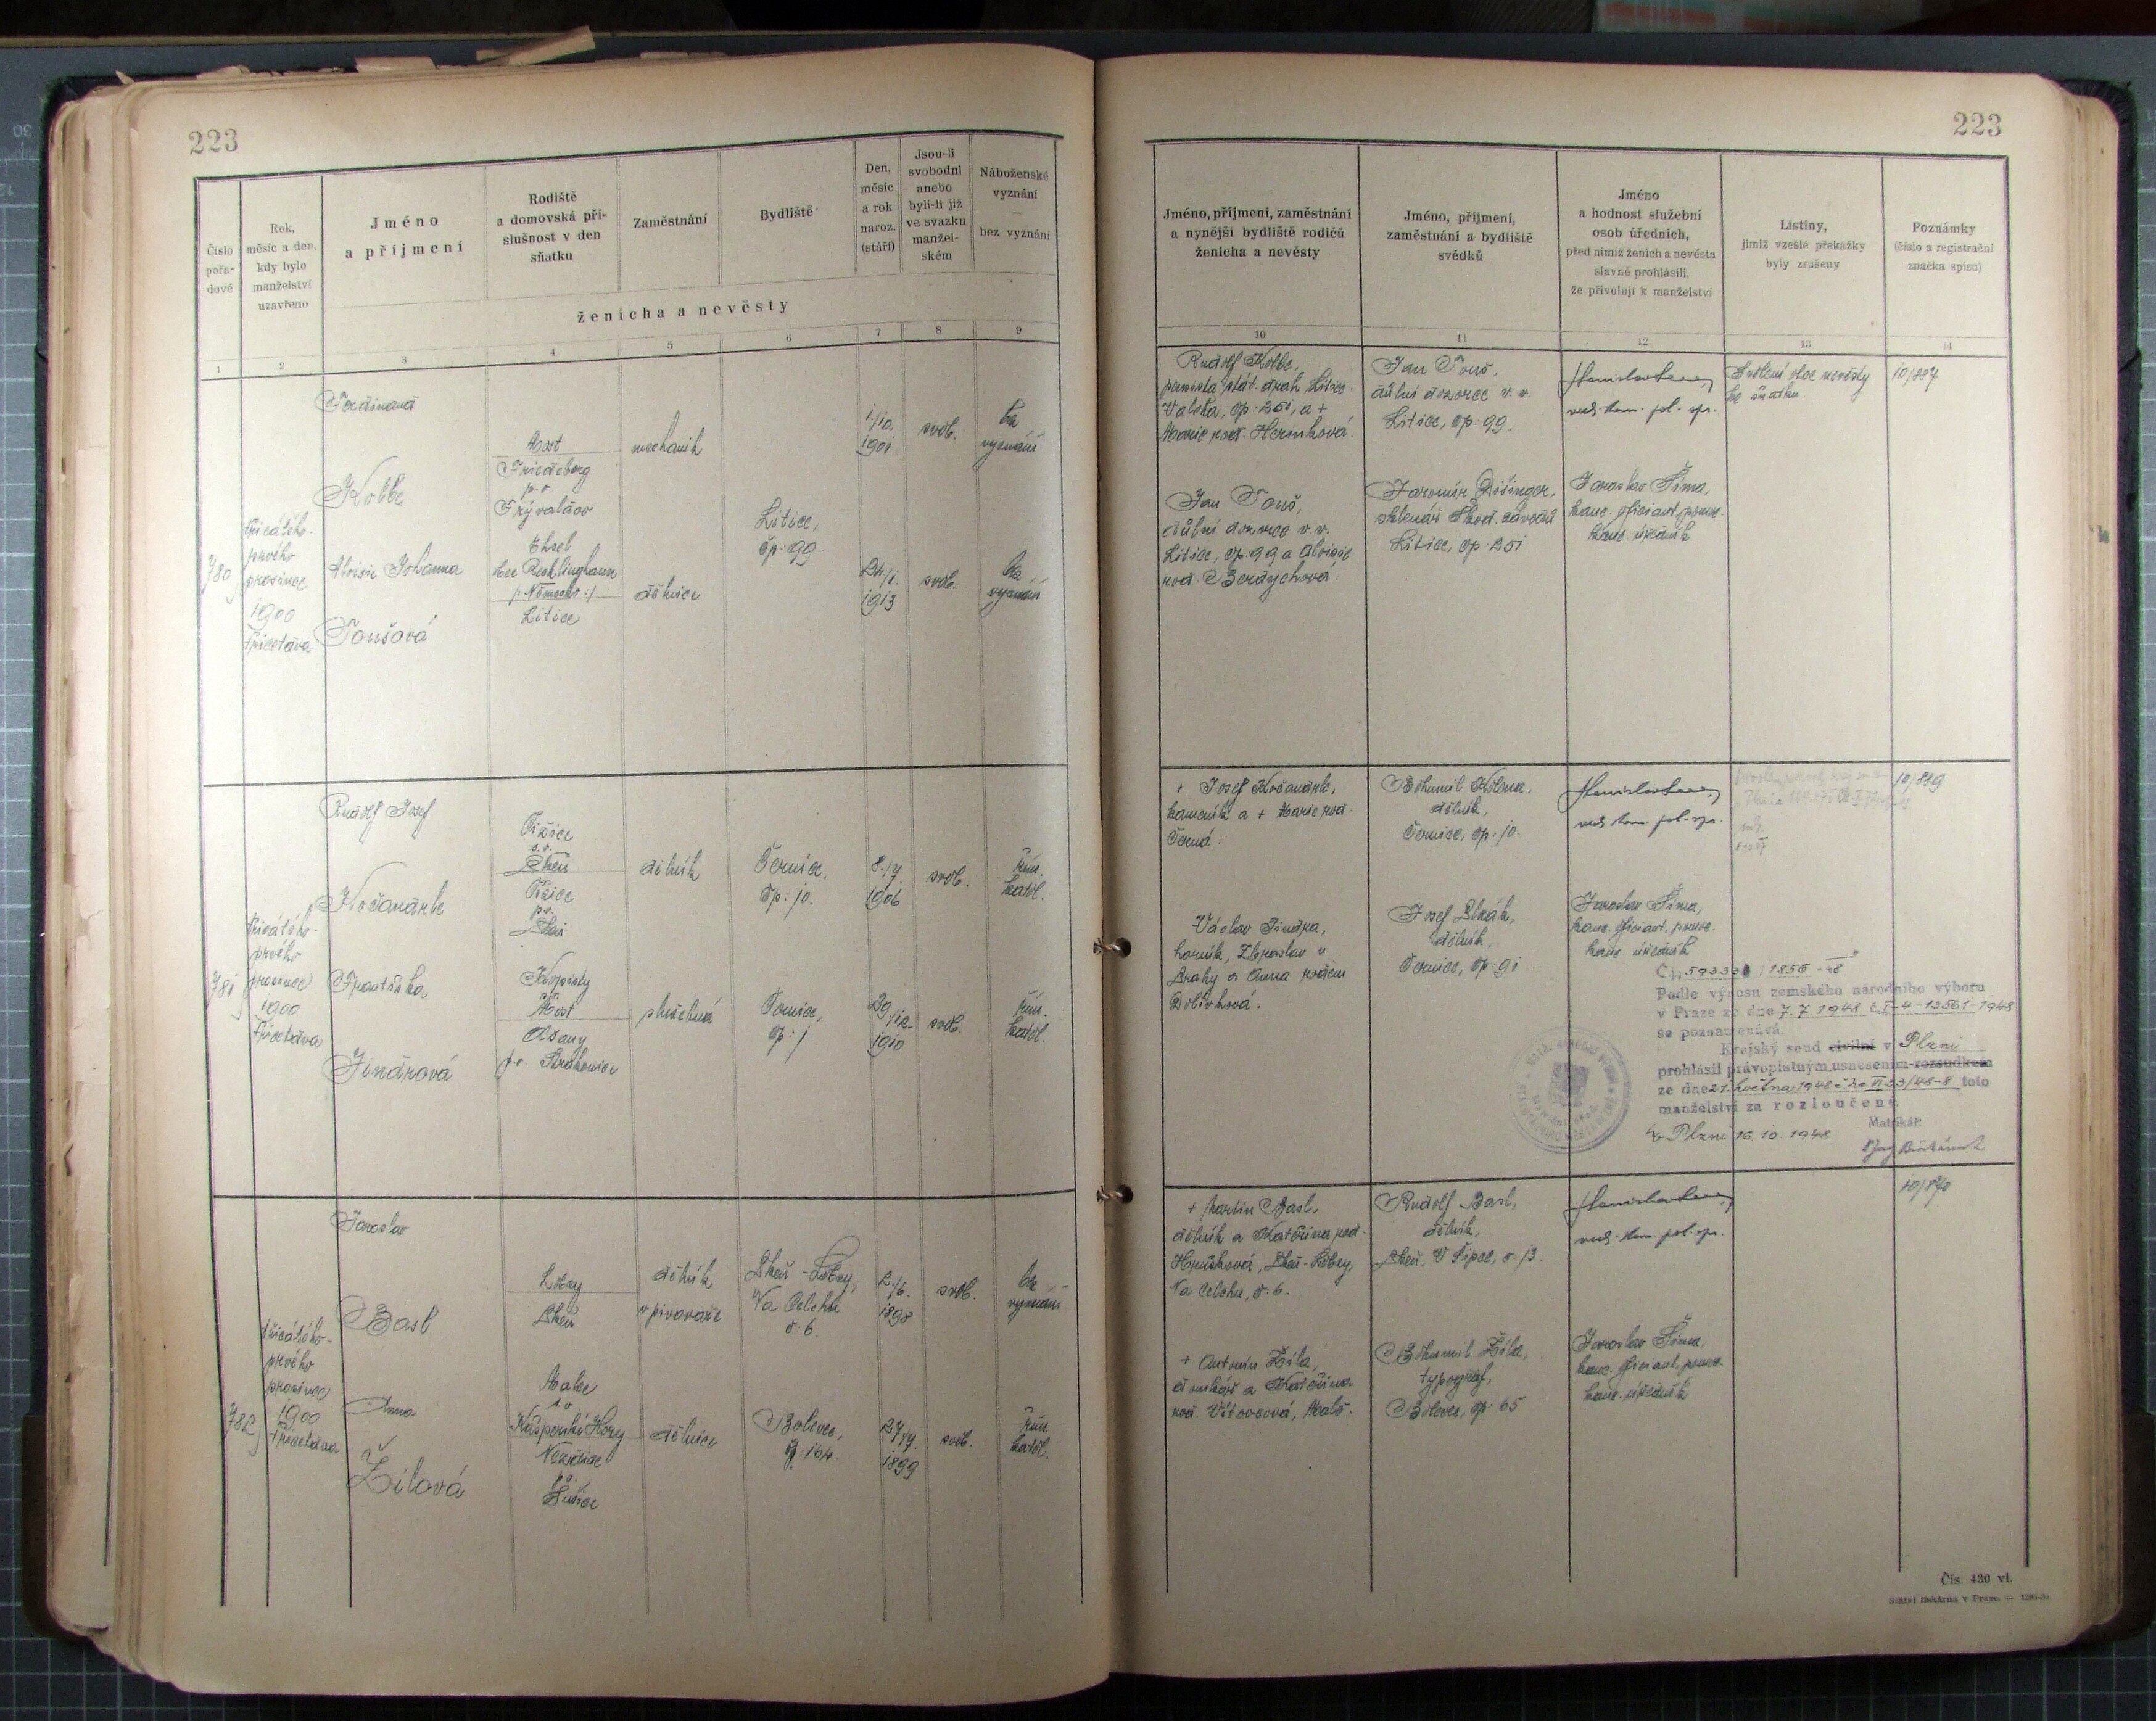 223
Číslo pořa-dové
Rok, měsíc a den, kdy bylo manželství uzavřeno
Jméno a příjmení
Rodiště a domovská pří-slušnost v den sňatku
Zaměstnání
Bydliště
Den, měsíc a rok naroz. (stáří)
Jsou-li svobodni anebo byli-li již ve svazku manžel-ském
Náboženské vyznání — bez vyznání
ženicha a nevěsty
1 2 3 4 5 6 7 8 9
780
třicátého-
prvého
prosince
1900
třicetdva
Ferdinand
Kolbe
Most
Friedeberg
p. o.
Frývaldov
mechanik
1/10.
1901
svob.
bez
vyznání
Litice,
čp. 99.
Aloisie Johanna
Toušová
bei Recklinghausen
/: Německo :/
Litice
dělnice
24/1.
1913
svob.
bez
vyznání
781
třicátého-
prvého
prosince
1900
třicetdva
Rudolf Josef
Kočandrle
s. o.
Plzeň
p. o.
dělník
Černice,
čp: 10.
8./7.
1906
svob.
řím.
katol.
Františka
Jindrová
Kopisty
Most
Ošany
p. o. Strakonice
služebná
Černice,
čp: 1
29./12.
1910
svob.
řím.
katol.
782
třicátého-
prvého
prosince
1900
třicetdva
Jaroslav
Basl
Lobzy
Plzeň
dělník
v pivovaře
Plzeň-Lobzy,
Na Celchu
č: 6.
2./6.
1898
svob.
bez
vyznání
Anna
Žílová
s. o.
Kašperské Hory
Nezdice
p. o.
Sušice
dělnice
Bolevec,
čp: 164.
27/7.
1899
svob.
řím.
katol.
223
Jméno, příjmení, zaměstnání a nynější bydliště rodičů ženicha a nevěsty
Jméno, příjmení, zaměstnání a bydliště svědků
Jméno a hodnost služební osob úředních, před nimiž ženich a nevěsta slavně prohlásili, že přivolují k manželství
Listiny, jimiž vzešlé překážky byly zrušeny
Poznámky (číslo a registrační značka spisu)
10 11 12 13 14
Rudolf Kolbe,
pensista stát. drah Litice-
Valcha, čp: 251, a +
Marie roz. Herinková.
Jan Touš,
důlní dozorce v. v.
Litice, čp: 99.
vrch. kom. pol. spr.
Svolení otce nevěsty
ke sňatku.
10/887
Jan Touš,
důlní dozorce v. v.
Litice, čp. 99 a Aloisie
roz. Berdychová.
Jaromír Dišinger,
sklenář Škod. závodů
Litice, čp: 251
Jaroslav Šíma,
kanc. oficiant, pomoc.
kanc. úředník
+ Josef Kočandrle,
kameník a + Marie roz.
Černá.
Bohumil Kolena,
dělník,
Černice, čp: 10.
vrch. kom. pol. spr.
10/889
Václav Jindra,
horník, Zbraslav u
Prahy a Anna rozem
Dolivková.
Josef Plzák,
dělník,
Černice, čp: 91
Jaroslav Šíma,
kanc. oficiant, pomoc.
kanc. úředník
Podle výnosu zemského národního výboru
v Praze ze dne 7.7.1948 č. I-4-13561-1948
se poznamenává.
Krajský soud civilní v Plzni
prohlásil právoplatným usnesením rozsudkem
ze dne 21. května 1948 č. Nc VI 33/48-8 toto
manželství za rozloučené.
V Plzni 16. 10. 1948
Matrikář:
+ Martin Basl,
dělník a Kateřina roz.
Hrušková, Plzeň-Lobzy,
Na Celchu, č. 6.
Rudolf Basl,
dělník,
Plzeň, V Šipce, č. 13.
vrch. kom. pol. spr.
10/870
+ Antonín Žíla,
domkář a Kateřina
roz. Vítovcová, Maleč.
Bohumil Žíla,
typograf,
Bolevec, čp: 65
Jaroslav Šíma,
kanc. oficiant, pomoc.
kanc. úředník
Čís. 430 vl.
Státní tiskárna v Praze. —